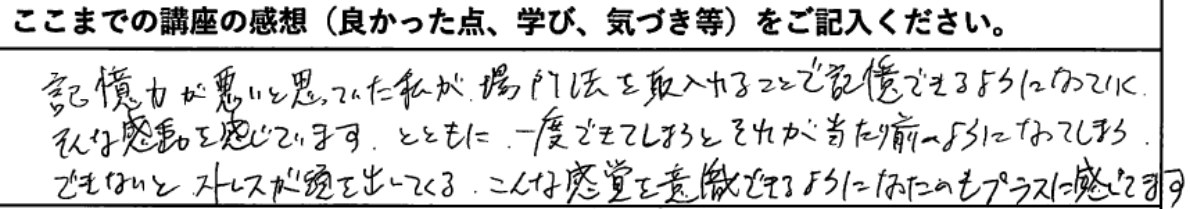 ここまでの講座の感想（良かった点、学び、気づき等）をご記入ください。
記憶力が悪いと思っていた私が、場所法を取入れることで記憶できるようになっていく、
そんな感動を感じています。とともに、一度できてしまうとそれが当たり前のようになってしまう。
できないとストレスが頭を出してくる。こんな感覚を意識できるようになったのもプラスに感じてます